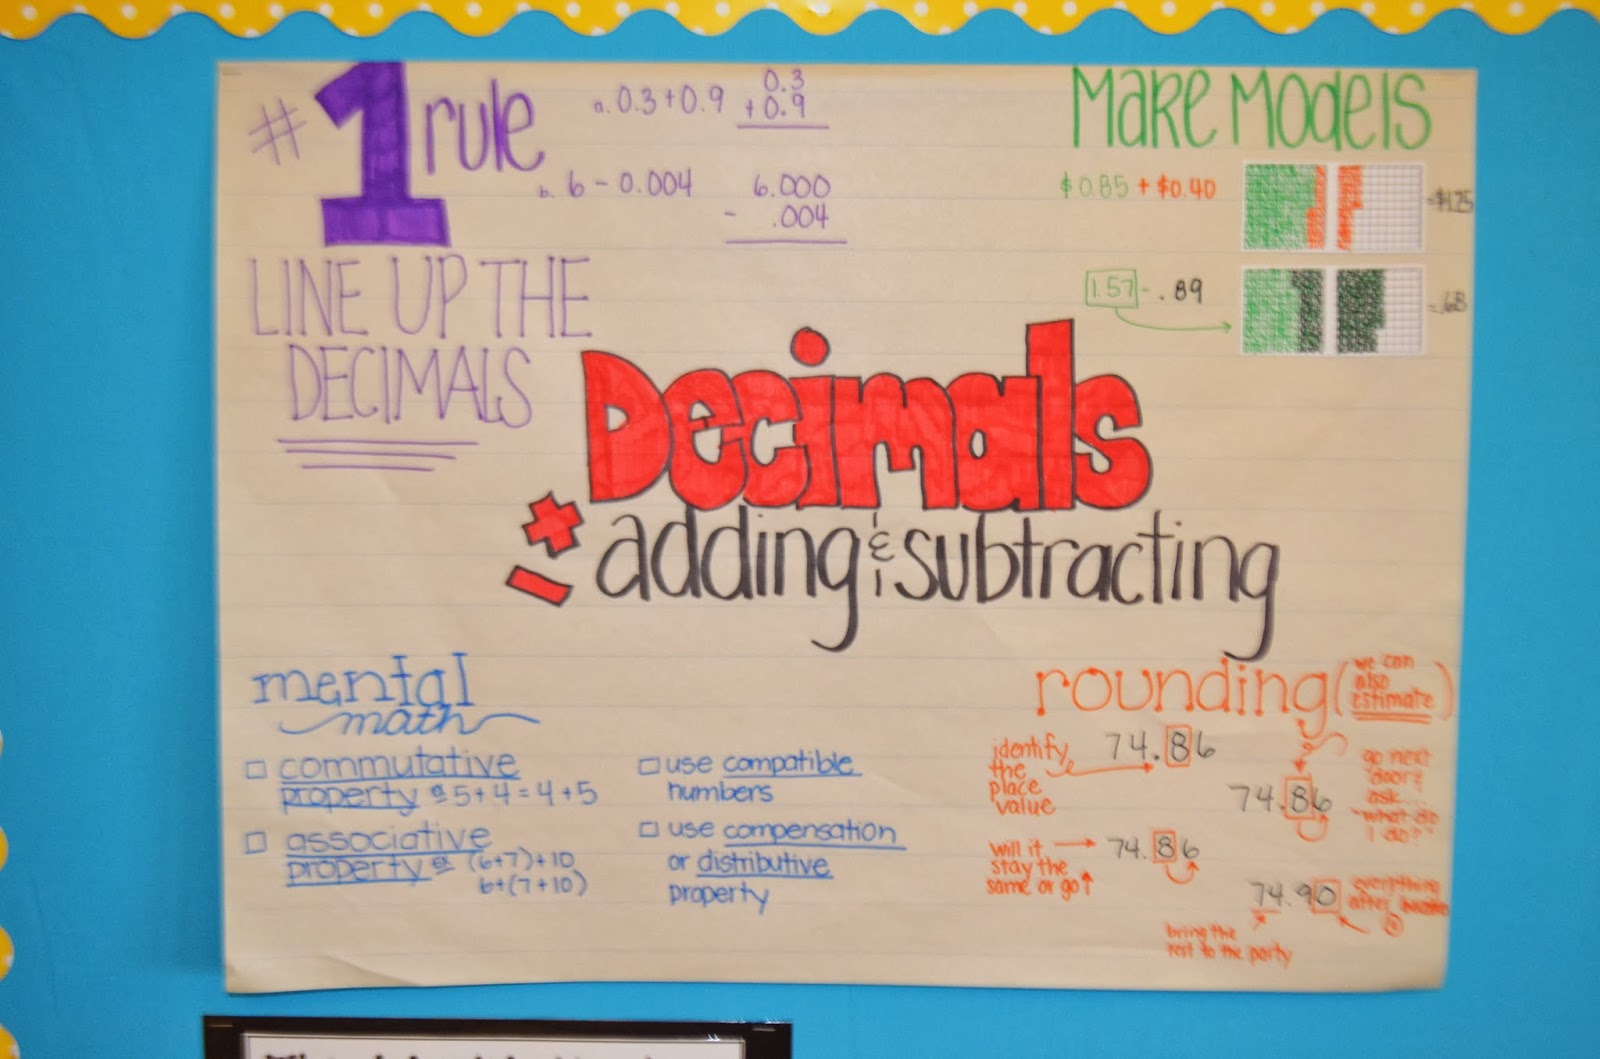 #1 rule
LINE UP THE
DECIMALS
a. 0.3+0.9
0.3
+ 0.9
b. 6 - 0.004
6.000
- .004
Make Models
$0.85 + $0.40
= $1.25
1.57 - .89
= .68
Decimals
+ - adding & subtracting
mental
math
commutative
property 5+4=4+5
associative
property (6+7)+10
6+(7+10)
use compatible
numbers
use compensation
or distributive
property
rounding (we can
also
estimate)
identify
the
place
value
74.86
74.86
go next
door &
ask...
"what do
I do?"
will it
stay the
same or go
74.86
74.90
everything
after
bring the
rest to the party